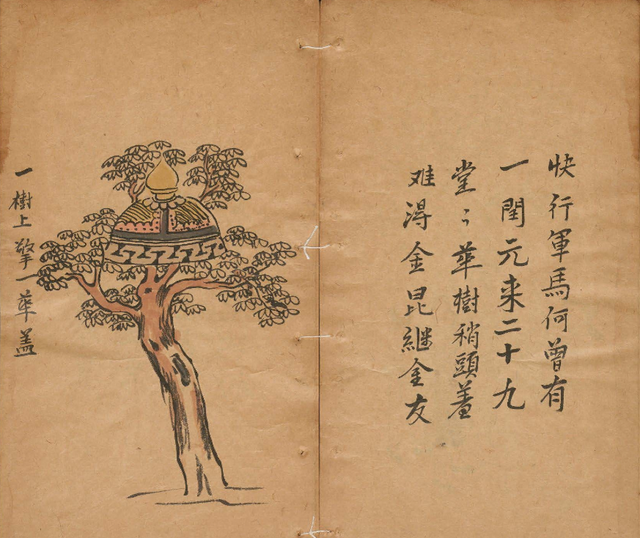 快行軍馬何曾有
一閏元来二十九
堂〻華樹稍頭蓋
难淂金昆継金友
一樹上擎一華盖